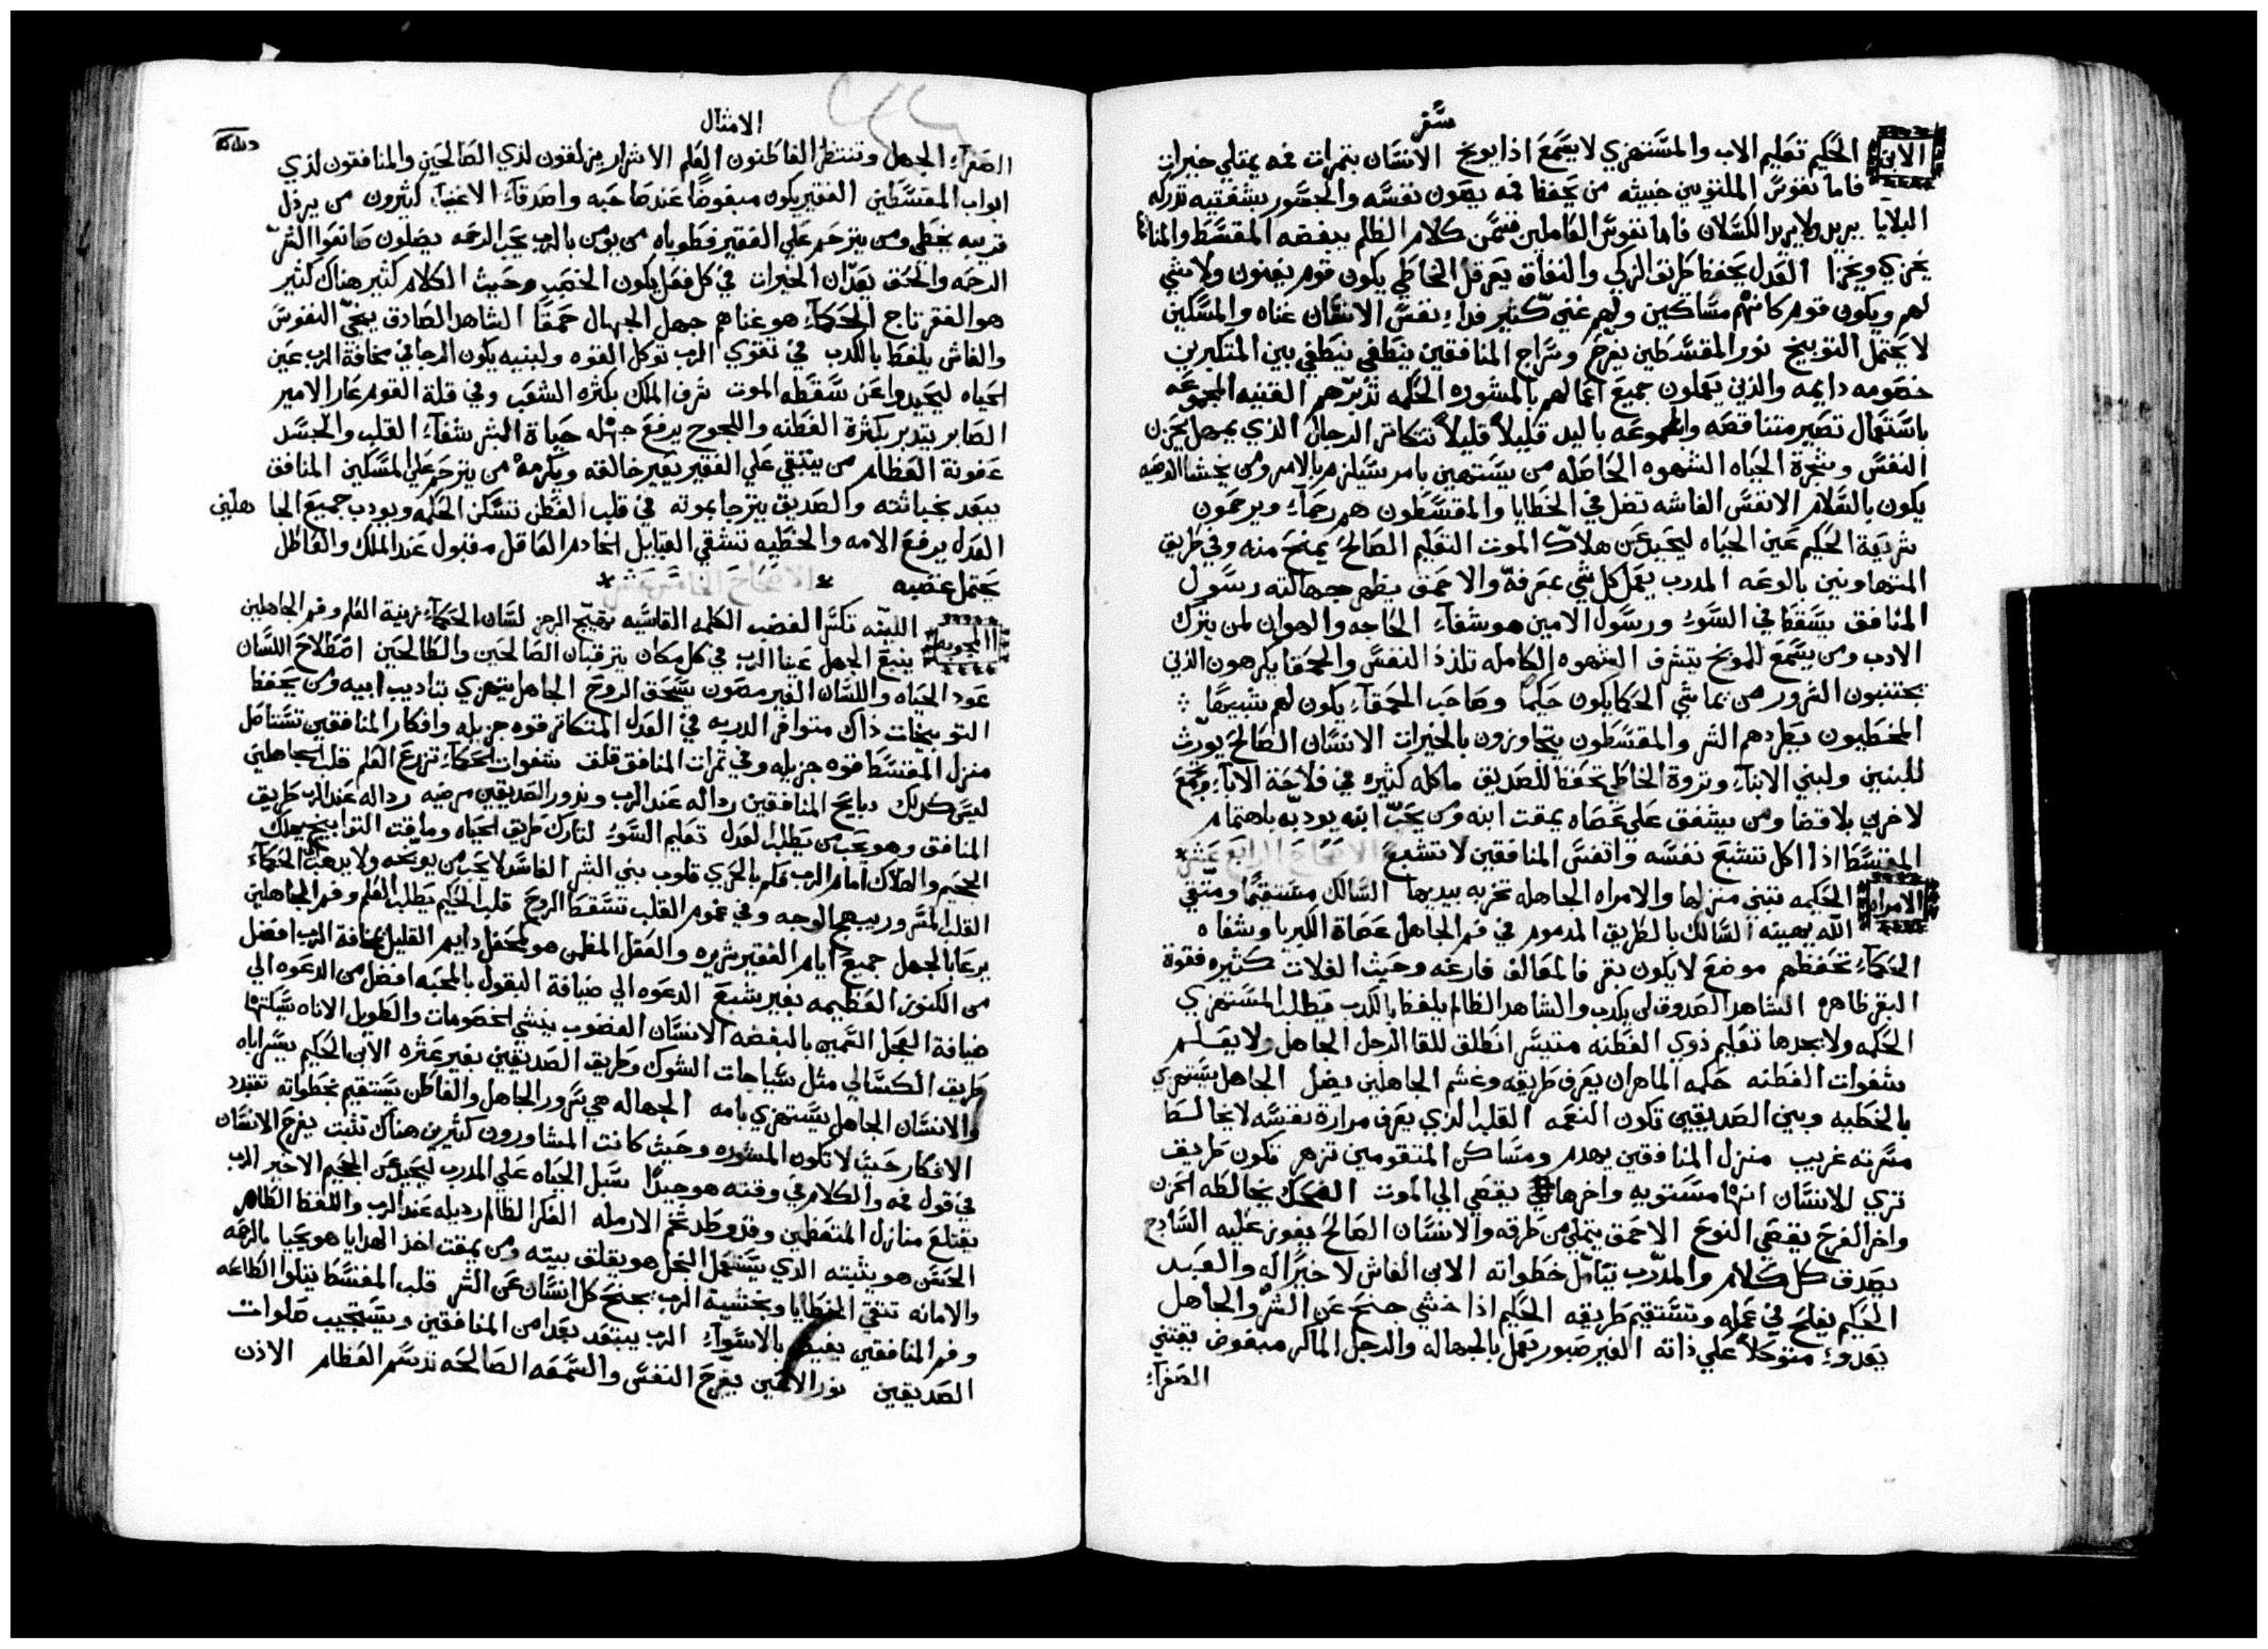 سفر
الابن الحكيم تعليم الاب والمستهزي لا يسمع اذا يوبخ الانسان بثمرات فمه يمتلي خيرات
فاما نفوس الملتويين خبيثه من يحفظ فمه يصون نفسه والجسور بشفتيه تدركه
البلايا يريد ولا يريد الكسلان فاما نفوس العاملين فتسمن كلام الظلم يبغضه المقسط والمنافق
يخزي ويخزا العدل يحفظ طريق الزكي والنفاق يعرقل الخاطي يكون قوم يغنون ولا شي
لهم ويكون قوم كانهم مساكين ولهم غني كثير فداء نفس الانسان غناه والمسكين
لا يحتمل التوبيخ نور المقسطين يفرح وسراج المنافقين ينطفي بين المتكبرين
خصومه دايمه والذين يعملون جميع اعمالهم بالمشوره الحكمه تدبرهم القنيه المجموعه
باستعمال تصير متناقصه والمجموعه باليد قليلاً قليلاً تتكاثر الرجال الذي يمهل يحزن
النفس وشجرة الحياه الشهوه الحاصله من يستهين بامر سيلزم بالامر ومن يخشا الوصيه
يكون بالسلام الانفس الغاشه تضل في الخطايا والمقسطون هم رحماء ويرحمون
شريعة الحكيم عين الحياه ليحيد عن هلاك الموت التعليم الصالح يمنح منه وفي طريق
المتهاونين بالوعه المدرب يعمل كل شي بمعرفة والاحمق يظهر جهالته رسول
المنافق يسقط في السوء ورسول الامين هو شفاء الحاجه والهوان لمن يترك
الادب ومن يسمع للموبخ يتشرف الشهوه الكامله تلذذ النفس والحمقا يكرهون الذين
يجتنبون الشرور من يماشي الحكما يكون حكيماً وصاحب الحمقاء يكون لهم شبيهاً
المخطيون يطردهم الشر والمقسطون يجاوزون بالخيرات الانسان الصالح يورث
للبنين ولبني الابناء وثروة الخاطي تحفظ للصديق ماكله كثيره في فلاحة الاباء وتجمع
لاخرين بلا قضا ومن يشفق علي عصاه يمقت ابنه ومن يحب ابنه يودبه باهتمام
المقسط اذا اكل تشبع نفسه وانفس المنافقين لا تشبع الاصحاح الرابع عشر
الامراه الحكيمه تبني منزلها والامراه الجاهله تخربه بيديها السالك مستقيماً ومتقي
الله يهينه السالك بالطريق المذموم في فم الجاهل عصاة الكبريا وشفاه
الحكماء تحفظهم موضع لا يكون بقر فالمعالف فارغه وحيث الغلات كثيره فقوة
البقر ظاهره الشاهد الصدوق لن يكدب والشاهد الظالم يلفظ بالكدب يطلب المستهزي
الحكمه ولا يجدها تعليم ذوي الفطنه متيسر انطلق للقا الرجل الجاهل ولا يعلم
شفوات الفطنه حكمه الماهر ان يعرف طريقه وغشم الجاهلين يضل الجاهل يستهزي
بالخطيه وبين الصديقين تكون النعمه القلب الذي يعرف مرارة نفسه لا يخالط
مسرته غريب منزل المنافقين يهدم ومساكن المتقومين تزهر تكون طريق
تري للانسان انها مستويه واخرها يفضي الي الموت الضحك يخالطه الحزن
واخر الفرح يقضي النوح الاحمق يمتلي من طرقه والانسان الصالح يفوز عليه السادج
يصدق كل كلام والمدرب يتامل خطواته الابن الغاش لا خيراً له والعبد
الحكيم يفلح في عمله وتستقيم طريقه الحكيم اذا خشي جنح عن الشر والجاهل
يعدوء متوكلاً علي ذاته الغير صبور يعمل بالجهاله والرجل الماكر مبغوض يقتني
الصغراء
الامثال
الصغراء الجهل وتنتظر الفاطنون العلم الاشرار يزلقون لذي الصالحين والمنافقون لذي
ابواب المقسطين الفقير يكون مبغوضاً عند صاحبه واصدقاء الاغنياء كثيرون من يرذل
قريبه يخطي ومن يترحم علي الفقير فطوباه من يومن بالرب يحب الرحمه يضلون صانعوا الشر
الرحمه والحق يعدان الخيرات في كل فعل يكون الخصب وحيث الكلام كثير هناك كثير
هو الفقر تاج الحكماء هو غناهم جهل الجهال حمقاً الشاهد الصادق ينجي النفوس
والغاش يلفظ بالكدب في تقوي الرب توكل القوه ولبنيه يكون الرجا في مخافة الرب عين
الحياه ليحيدوا عن سقطه الموت شرف الملك بكثره الشعب وفي قلة القوم عار الامير
الصابر يتدبر بكثرة الفطنه واللجوج يرفع جهله حياة البشر شفاء القلب والحسد
عفونة العظام من يبتغي علي الفقير يعير خالقه ويكرمه من يترحم علي المسكين المنافق
يبعد بخباثته والصديق يترجا بموته في قلب الفطن تسكن الحكمه ويودب جميع الجاهلين
العدل يرفع الامه والخطيه تشقي القبايل الخادم العاقل مقبول عند الملك والعاطل
يحتمل غضبه الاصحاح الخامس عشر
الجوبه اللينه تكسر الغضب الكلمه القاسيه تهيج الرجز لسان الحكماء زينة العلم وفم الجاهلين
ينبع الجهل عينا الرب في كل مكان يترقبان الصالحين والطالحين اصطلاح اللسان
عود الحياه واللسان الغير مصون يسحق الروح الجاهل يتهزي بتاديب ابيه ومن يحفظ
التوبيخات ذاك متوافر الدربه في العدل المتكاثر قوه جزيله وافكار المنافقين تستاصل
منزل المقسط قوه جزيله وفي ثمرات المنافق قلق شفوات الحكماء تزرع العلم قلب الجاهلين
ليس كذلك دبايح المنافقين رداله عند الرب وندور الصديقين مرضيه رداله عند الرب طريق
المنافق وهو يحب من يطلب العدل تعليم السوء لتارك طريق الحياه وماقت التوابيخ يهلك
الجحيم والهلاك امام الرب فكم بالحري قلوب بني البشر الفاسد لا يحب من يوبخه ولا يرهب الحكماء
القلب المسرور يبهج الوجه وفي غموم القلب تسقط الروح قلب الحكيم يطلب العلم وفم الجاهلين
يرعا بالجهل جميع ايام الفقير شريره والعقل المطمن هو كمحفل دايم القليل بمخافة الرب افضل
من الكنوز العظيمه بغير شبع الدعوه الي ضيافة البقول بالمحبه افضل من الدعوه الي
ضيافة العجل السمين بالبغضه الانسان الغضوب ينشي الخصومات والطويل الاناه يسكتها
طريق الكسالي مثل سياجات الشوك وطريق الصديقين بغير عثره الابن الحكيم يسر اباه
والانسان الجاهل يستهزي بامه الجهاله هي سرور الجاهل والفاطن يستقيم بخطواته تتبدد
الافكار حيث لا تكون المشوره وحيث كانت المشاورون كثيرين هناك تثبت يفرح الانسان
في قول فمه والكلام في وقته هو جيداً سبل الحياه علي المدرب ليحيد عن الجحيم الاخير الرب
يقتلع منازل المتعظمين وقد وطد تخم الارمله الفكر الظالم رديله عند الرب واللفظ الطاهر
الحسن هو يثبته الذي يستعمل البخل هو يقلق بيته ومن يمقت اخذ الهدايا هو يحيا بالرحمه
والامانه تنقي الخطايا وبخشية الرب يجنح كل انسان عن الشر قلب المقسط يتلوا الطاعه
وفم المنافقين يفيض بالاسواء الرب يبتعد بعداً من المنافقين ويستجيب صلوات
الصديقين نور الاعين يفرح النفس والسمعه الصالحه تدسم العظام الاذن